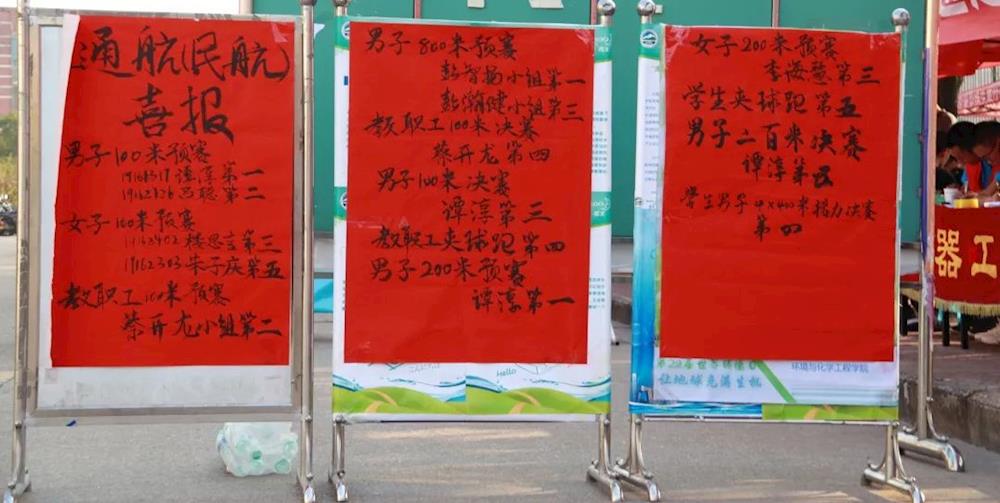 通航(民航)
喜报
男子100米预赛
谭淳第一
吕聪第二
女子100米预赛
楼思言第三
19162303朱子庆第五
教职工100米预赛
蔡开龙小组第二
男子800米预赛
彭智扬小组第一
彭瀚健小组第三
教职工100米决赛
蔡开龙第四
男子100米决赛
谭淳第三
教职工夹球跑第四
男子200米预赛
谭淳第一
Hello
女子200米预赛
李海慧第三
学生夹球跑第五
男子二百米决赛
谭淳第五
学生男子4×400米接力决赛
第四
让地球充满生机
环境与化学工程学院
器工